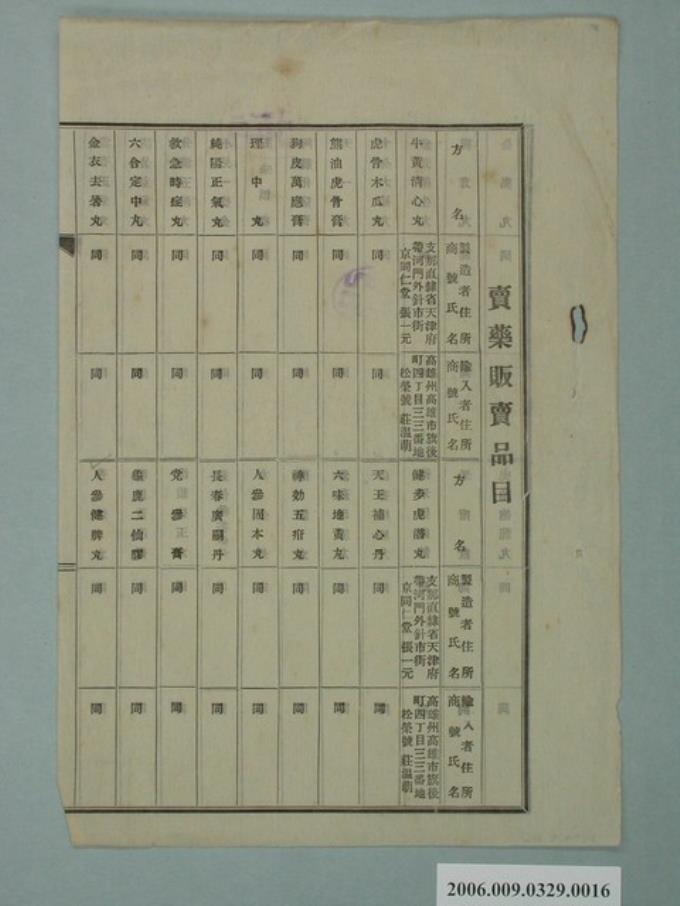 賣藥販賣品目
方名
製造者住所
商號氏名
輸入者住所
商號氏名
牛黃清心丸
支那直隸省天津府
帶河門外針市街
京同仁堂 張一元
高雄州高雄市旗後
町四丁目三三番地
松榮號 莊溫萌
虎骨木瓜丸
同
同
熊油虎骨膏
同
同
狗皮萬應膏
同
同
理中丸
同
同
純陽正氣丸
同
同
救急時症丸
同
同
六合定中丸
同
同
金衣去暑丸
同
同
方名
製造者住所
商號氏名
輸入者住所
商號氏名
健步虎潛丸
支那直隸省天津府
帶河門外針市街
京同仁堂 張一元
高雄州高雄市旗後
町四丁目三三番地
松榮號 莊溫萌
天王補心丹
同
同
六味地黃丸
同
同
神効五疳丸
同
同
人參固本丸
同
同
長春廣嗣丹
同
同
党參膏
同
同
龜鹿二仙膠
同
同
人參健脾丸
同
同
2006.009.0329.0016